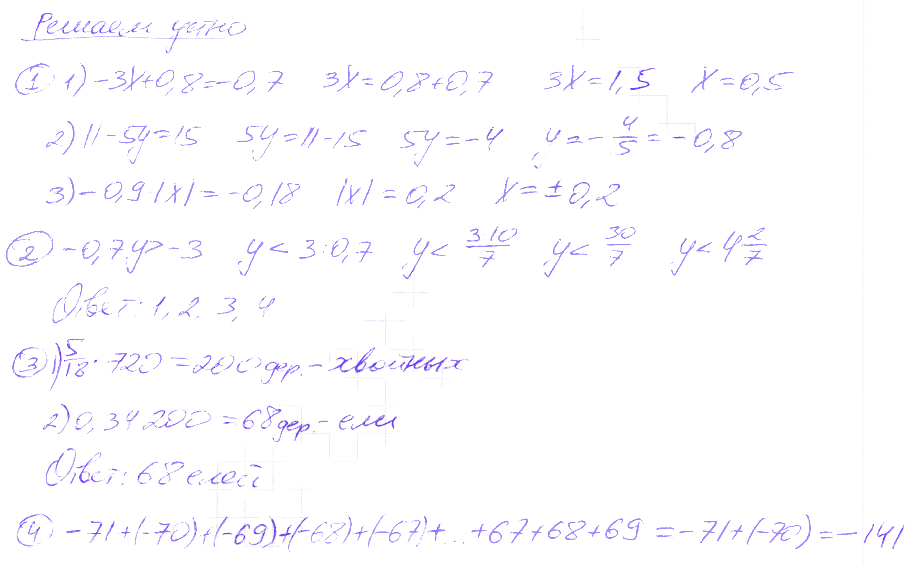 Решаем устно
① 1) -3x+0,8=-0,7 3x=0,8+0,7 3x=1,5 x=0,5
2) 11-5y=15 5y=11-15 5y=-4 y=-4/5=-0,8
3) -0,9|x|=-0,18 |x|=0,2 x=±0,2
② -0,7y>-3 y<3:0,7 y<3·10/7 y<30/7 y<4 2/7
Ответ: 1, 2, 3, 4
③ 1) 5/18·720=200дер.-хвойных
2) 0,34·200=68дер.-ели
Ответ: 68 елей
④ -71+(-70)+(-69)+(-68)+(-67)+...+67+68+69=-71+(-70)=-141